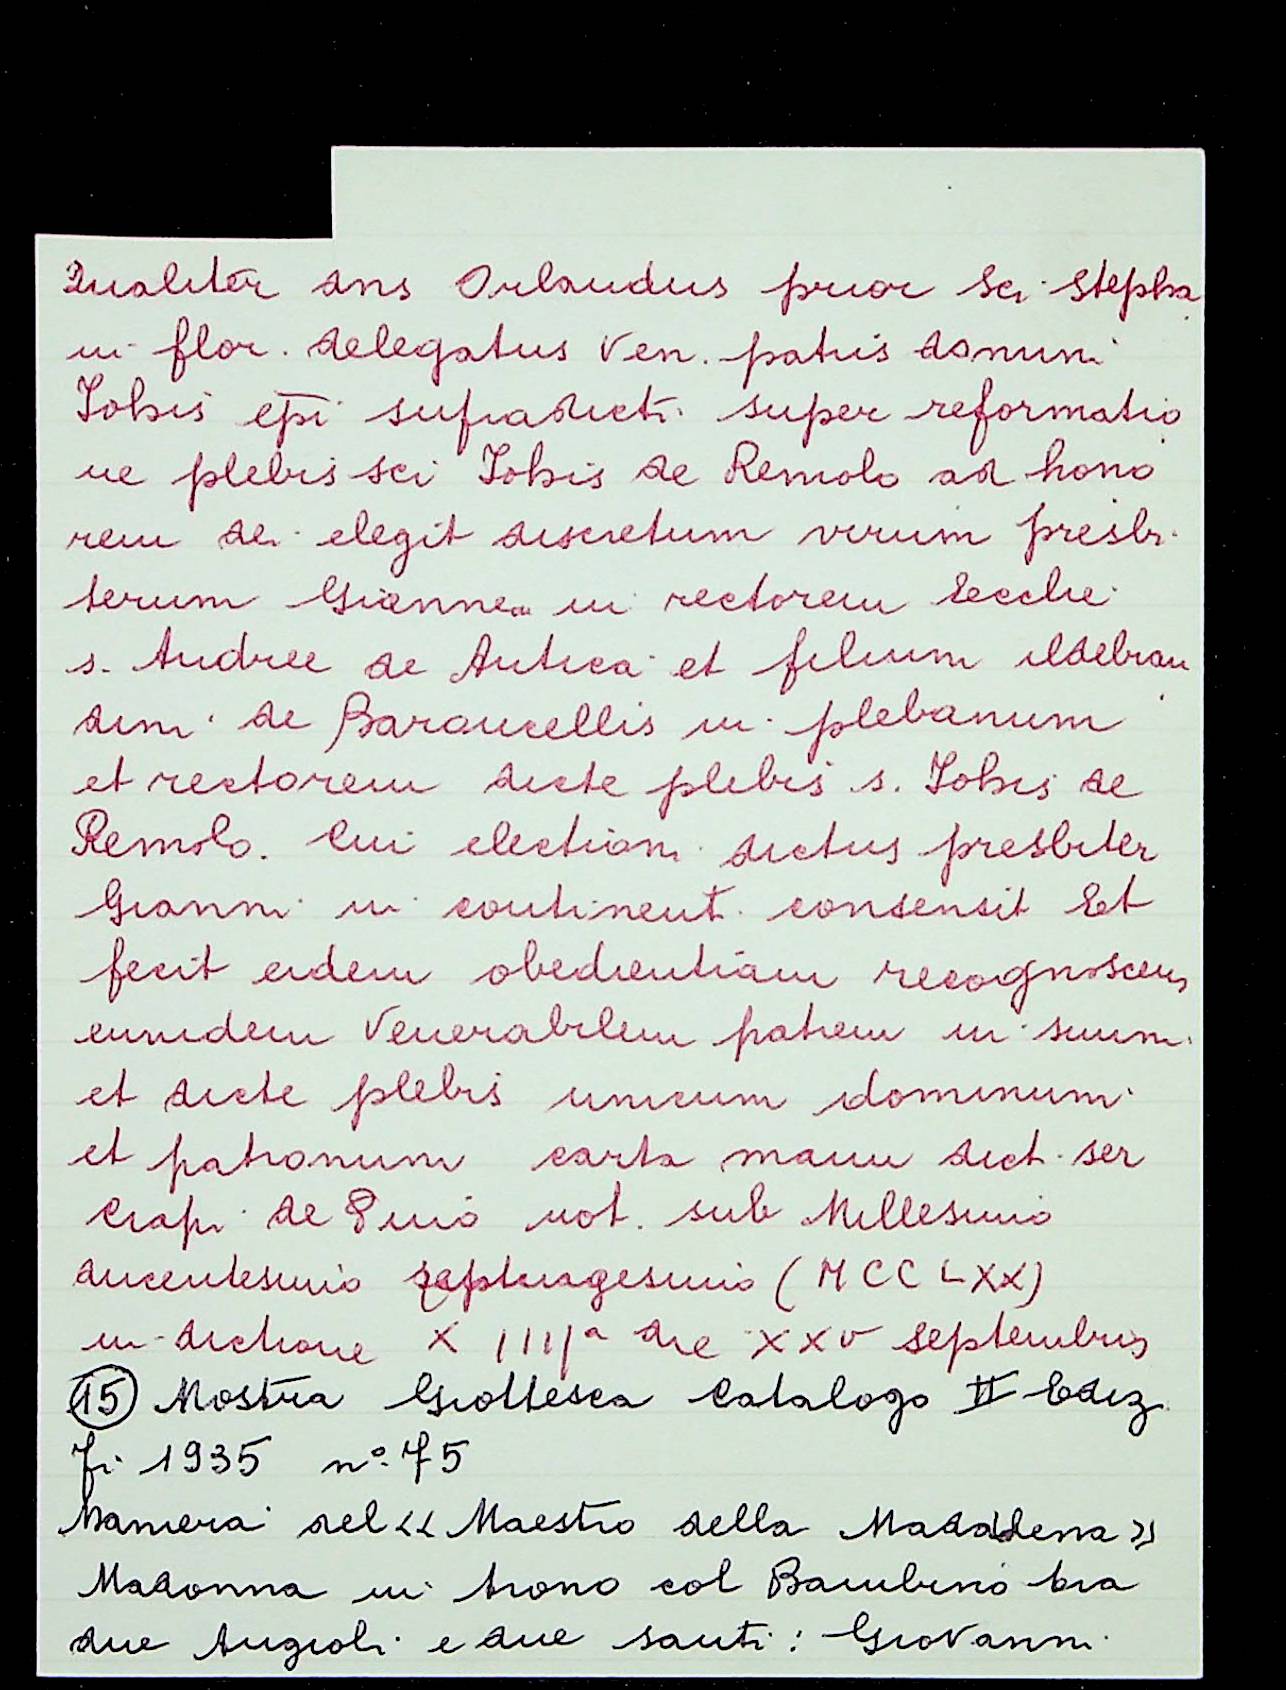 Qualiter dns Orlandus prior Sci Stepha
ni flor. delegatus Ven. patris domini
Iohis epi supradicti super reformatio
ne plebis sci Iohis de Remolo ad hono
rem dei elegit discretum virum presbi
terum Gianne in rectorem Ecclie
s. Andree de Antica et filium ildebran
dini de Baroncellis in plebanum
et rectorem dicte plebis s. Iohis de
Remolo. Cui electioni dictus presbiter
Gianni in continenti consensit Et
fecit eidem obedientiam recognoscens
eumdem Venerabilem patrem in suum
et dicte plebis unicum dominum
et patronum carta manu dict. ser
Ciapi de not. sub Millesimo
ducentesimo septuagesimo (MCCLXX)
indictione XIIIIa die XXV septembris
(15) Mostra Giottesca Catalogo II Ediz.
Fi 1935 n° 75
Maniera del << Maestro della Maddalena >>
Madonna in trono col Bambino tra
due Angioli e due santi: Giovanni